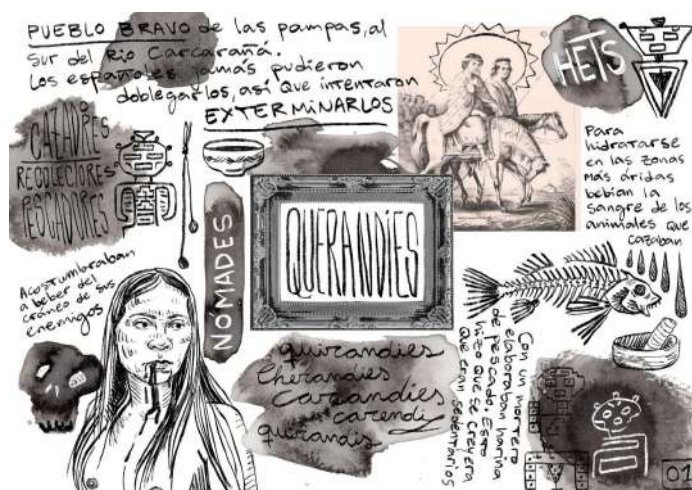 PUEBLO BRAVO de las pampas, al
sur del Río Carcarañá.
Los españoles jamás pudieron
doblegarlos, así que intentaron
EXTERMINARLOS
HETS
CAZADORES
RECOLECTORES
PESCADORES
Para
hidratarse
en las zonas
más áridas
bebían la
sangre de los
animales que
cazaban
NÓMADES
QUERANDIES
Acostumbraban
a beber del
cráneo de sus
enemigos
quirandies
Cherandies
Carandies
carendi
quirandis
Con un mortero
elaboraban harina
de pescado. Esto
hizo que se creyera
que eran sedentarios
01